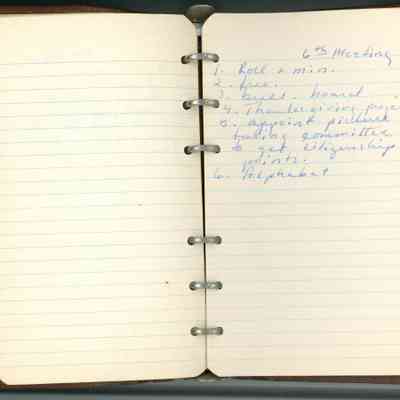 6th Meeting
1. Roll & min.
2.
3. Bull. board
4. Thanksgiving
5. appoint picture
taking committee
to get citizenship
points.
6. Alphabet